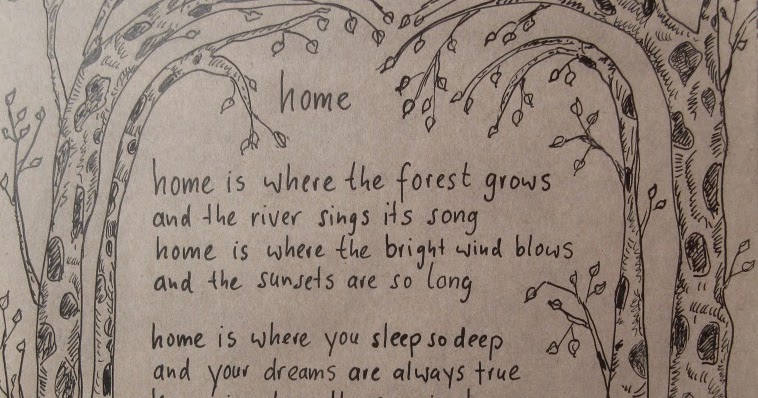 home
home is where the forest grows
and the river sings its song
home is where the bright wind blows
and the sunsets are so long
home is where you sleep so deep
and your dreams are always true